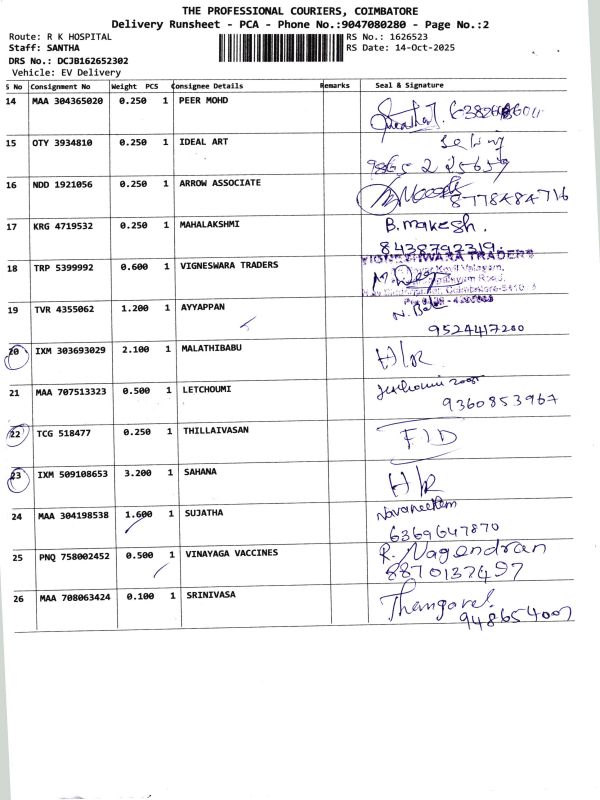 THE PROFESSIONAL COURIERS, COIMBATORE
Delivery Runsheet - PCA - Phone No.:9047080280 - Page No.:2
Route: R K HOSPITAL
RS No.: 1626523
Staff: SANTHA
RS Date: 14-Oct-2025
DRS No.: DCJB162652302
Vehicle: EV Delivery
S No Consignment No Weight PCS Consignee Details Remarks Seal & Signature
14 MAA 304365020 0.250 1 PEER MOHD
15 OTY 3934810 0.250 1 IDEAL ART
16 NDD 1921056 0.250 1 ARROW ASSOCIATE 8778484716
17 KRG 4719532 0.250 1 MAHALAKSHMI B.makesh.
8438792319.
VIGNESHWARA TRADERS
18 TRP 5399992 0.600 1 VIGNESWARA TRADERS
19 TVR 4355062 1.200 1 AYYAPPAN
9524417200
20 IXM 303693029 2.100 1 MALATHIBABU H/R
21 MAA 707513323 0.500 1 LETCHOUMI
9360853967
22 TCG 518477 0.250 1 THILLAIVASAN F/D
23 IXM 509108653 3.200 1 SAHANA H/R
24 MAA 304198538 1.600 1 SUJATHA Navaneetham
6369647870
25 PNQ 758002452 0.500 1 VINAYAGA VACCINES R. Nagendran
8870137497
26 MAA 708063424 0.100 1 SRINIVASA Thangavel.